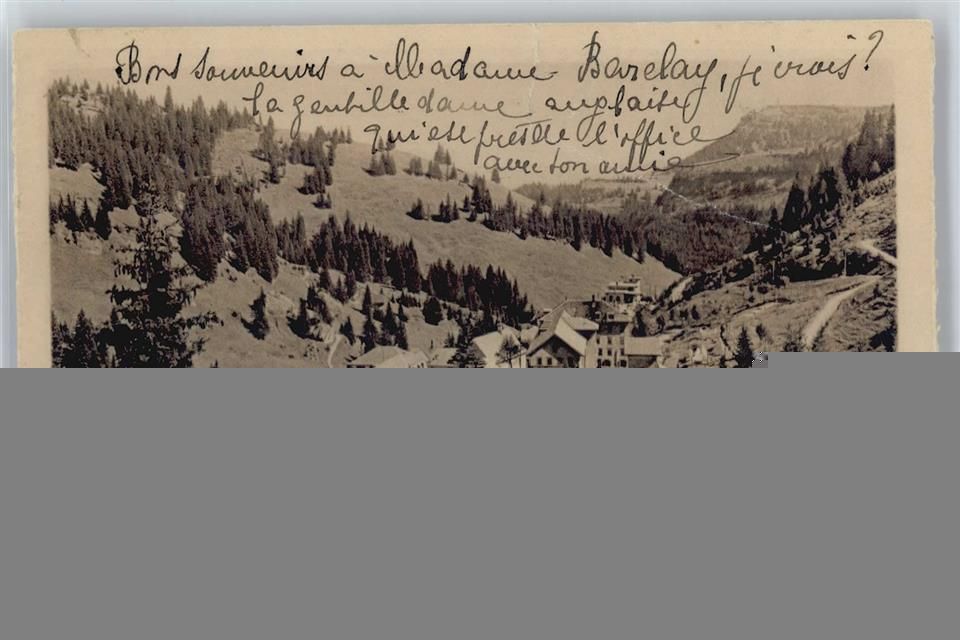 Bons souvenirs à Madame Barclay, je crois?
la gentille dame anglaise
qui est près de l'office
avec son amie